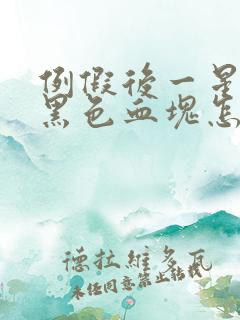 例假後一星
黑色血塊怎
德拉維多瓦
未经同意禁止转载